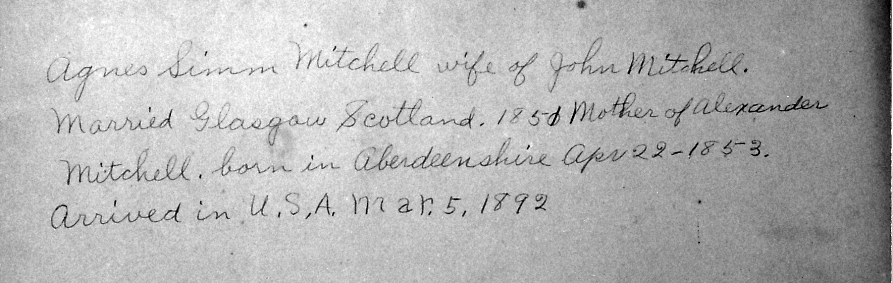 Agnes Simm Mitchell wife of John Mitchell.
Married Glasgow Scotland. 1851 Mother of Alexander
Mitchell. born in Aberdeenshire Apr 22-1853.
Arrived in U.S.A. Mar. 5, 1892